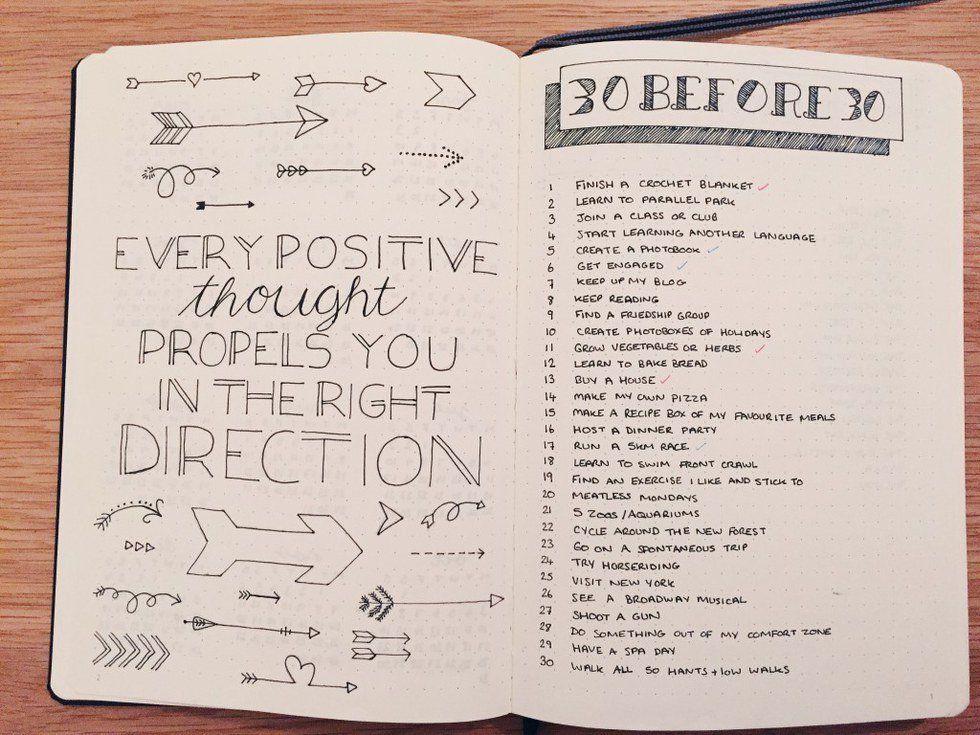 EVERY POSITIVE
thought
PROPELS YOU
IN THE RIGHT
DIRECTION
30 BEFORE 30
1 FINISH A CROCHET BLANKET ✓
2 LEARN TO PARALLEL PARK
3 JOIN A CLASS OR CLUB
4 START LEARNING ANOTHER LANGUAGE
5 CREATE A PHOTOBOOK ✓
6 GET ENGAGED ✓
7 KEEP UP MY BLOG
8 KEEP READING
9 FIND A FRIEDSHIP GROUP
10 CREATE PHOTOBOXES OF HOLIDAYS
11 GROW VEGETABLES OR HERBS ✓
12 LEARN TO BAKE BREAD
13 BUY A HOUSE ✓
14 MAKE MY OWN PIZZA
15 MAKE A RECIPE BOX OF MY FAVOURITE MEALS
16 HOST A DINNER PARTY
17 RUN A 5KM RACE ✓
18 LEARN TO SWIM FRONT CRAWL
19 FIND AN EXERCISE I LIKE AND STICK TO
20 MEATLESS MONDAYS
21 5 ZOOS / AQUARIUMS
22 CYCLE AROUND THE NEW FOREST
23 GO ON A SPONTANEOUS TRIP
24 TRY HORSERIDING
25 VISIT NEW YORK
26 SEE A BROADWAY MUSICAL
27 SHOOT A GUN
28 DO SOMETHING OUT OF MY COMFORT ZONE
29 HAVE A SPA DAY
30 WALK ALL 50 HANTS + IOW WALKS